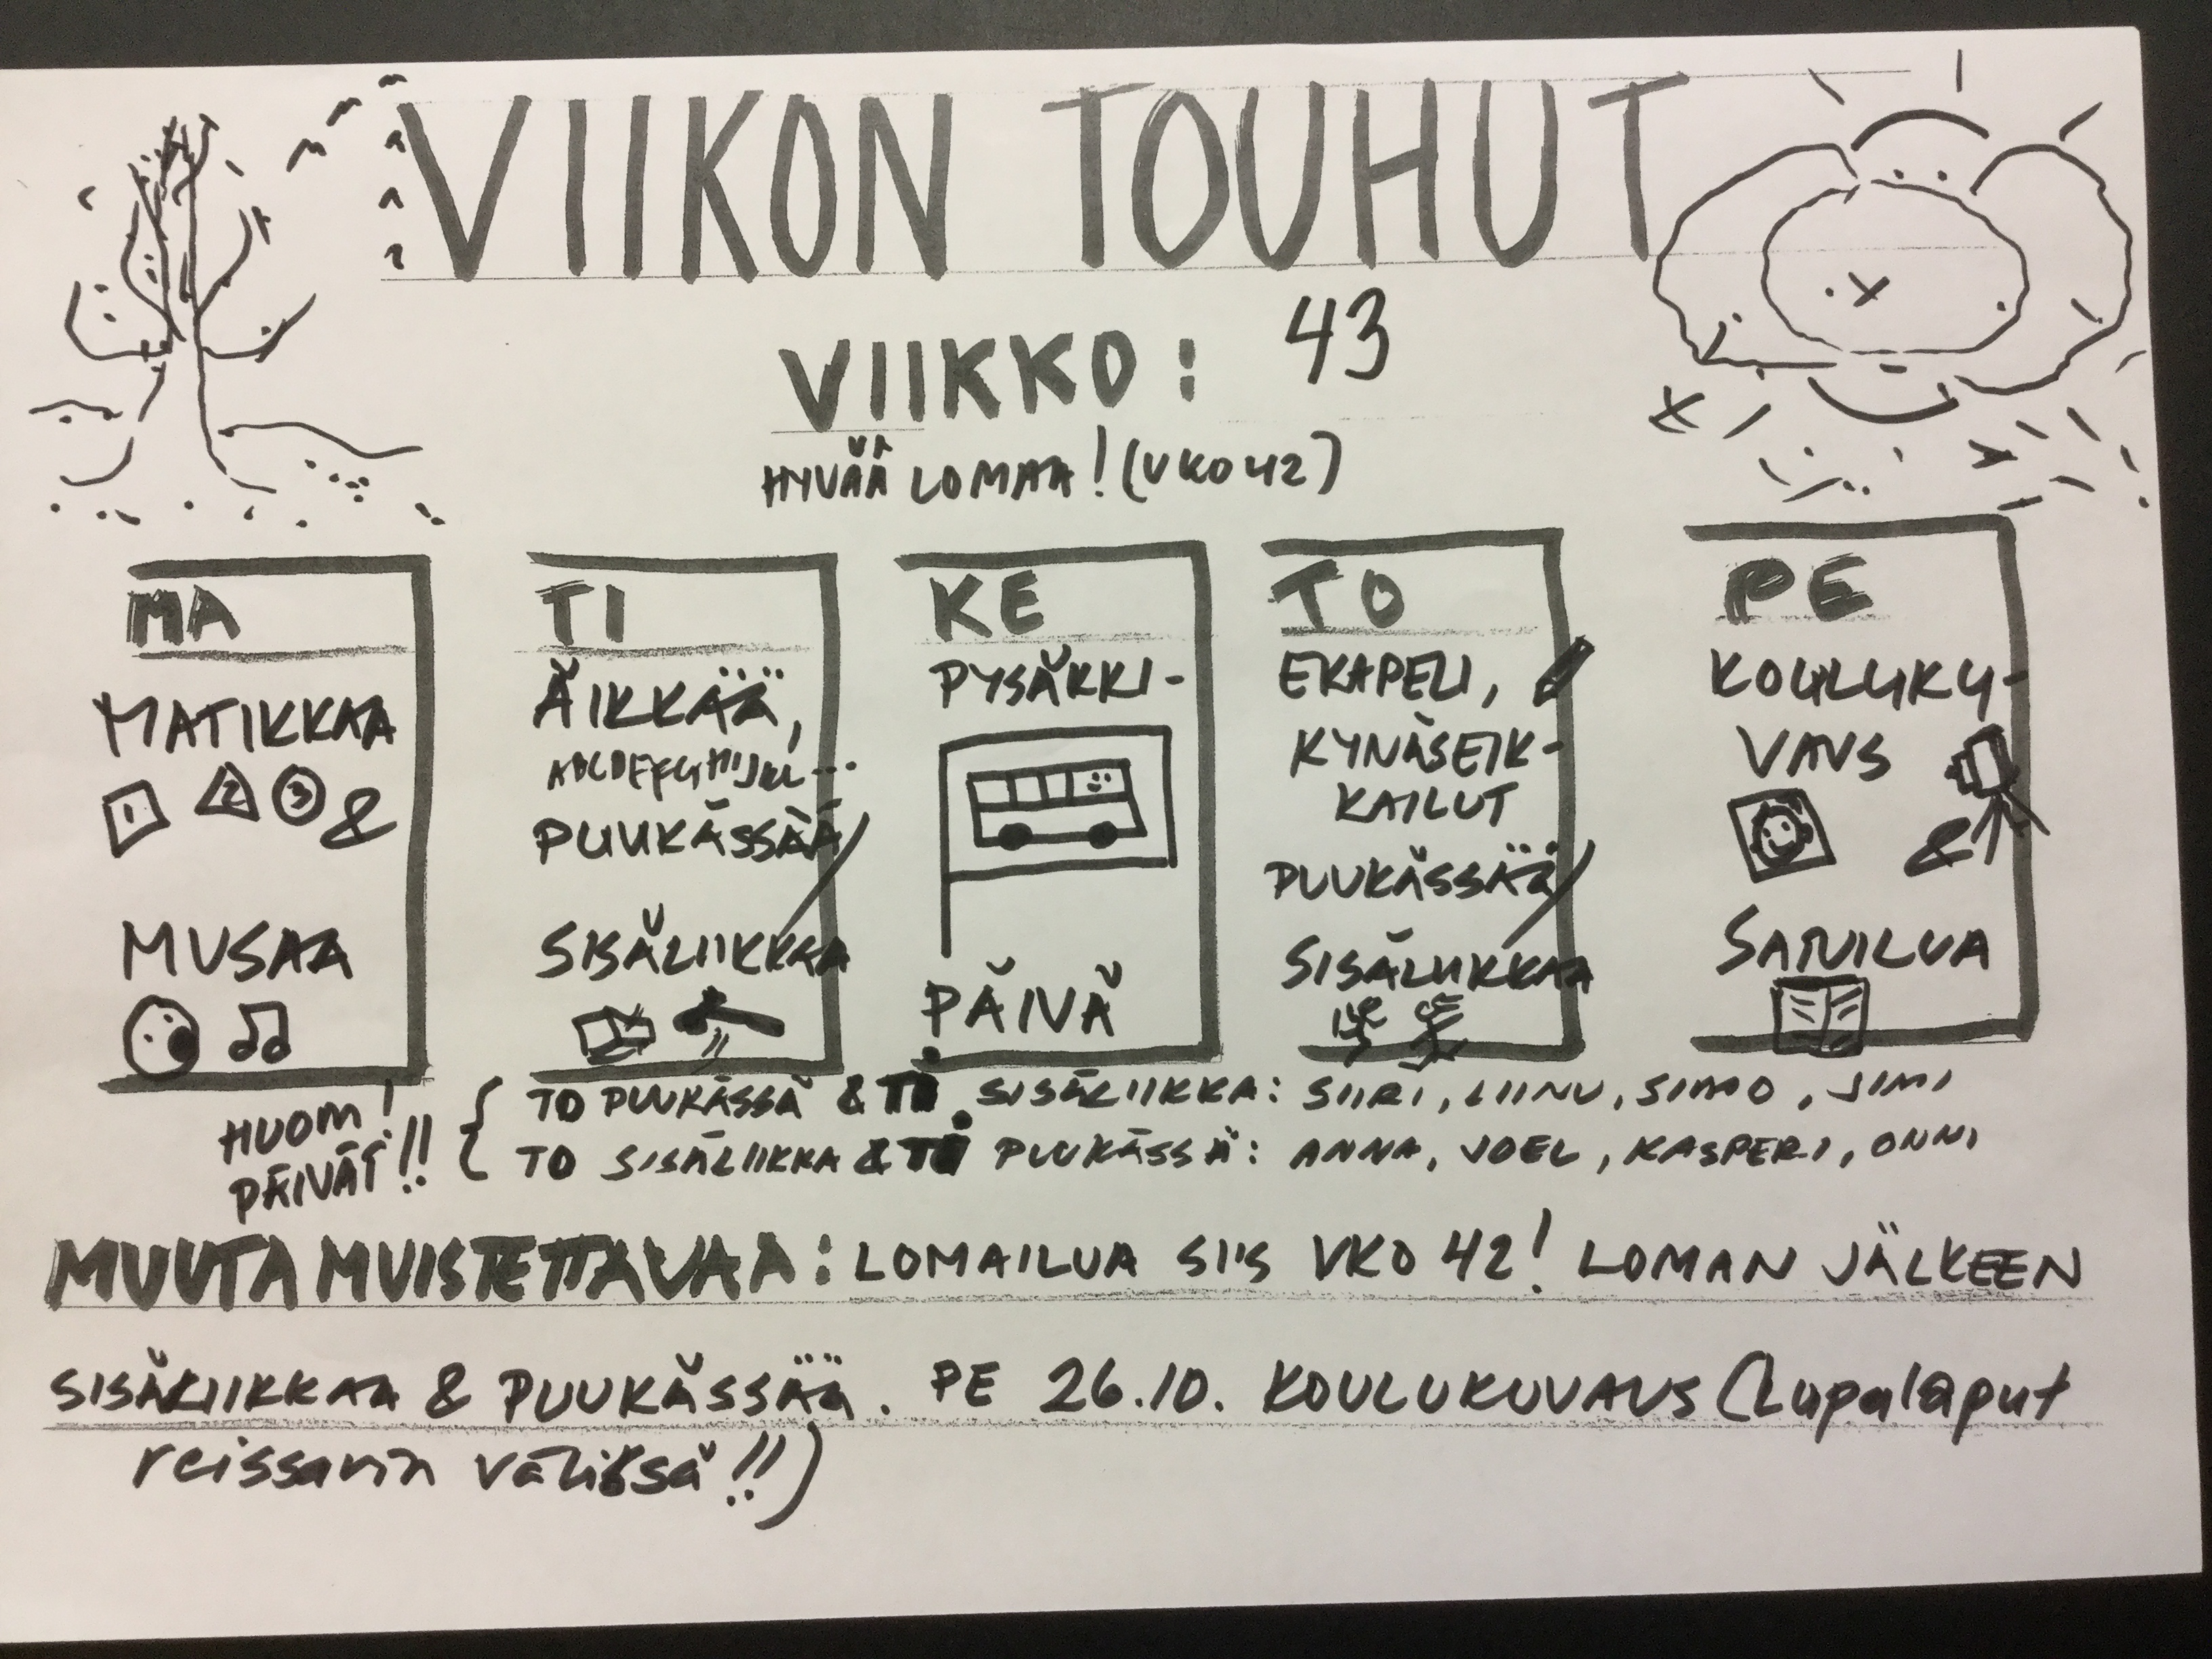 VIIKON TOUHUT
VIIKKO: 43
HYVÄÄ LOMAA! (VKO 42)
MA
MATIKKAA
1 2 3 &
MUSAA
TI
ÄIKKÄÄ,
ABCDEFGHIJKL...
PUUKÄSSÄÄ/
SISÄLIIKKAA
KE
PYSÄKKI-
PÄIVÄ
TO
EKAPELI,
KYNÄSEIK-
KAILUT
PUUKÄSSÄÄ/
SISÄLIIKKAA
PE
KOULUKU-
VAUS
&
SATUILUA
HUOM!
PÄIVÄT!!
TO PUUKÄSSÄ & TI SISÄLIIKKA: SIIRI, LIINU, SIMO, JIMI
TO SISÄLIIKKA & TI PUUKÄSSÄ: ANNA, JOEL, KASPERI, ONNI
MUUTA MUISTETTAVAA: LOMAILUA SIIS VKO 42! LOMAN JÄLKEEN
SISÄLIIKKAA & PUUKÄSSÄÄ. PE 26.10. KOULUKUVAUS (Lupalaput
reissarin välissä!!)